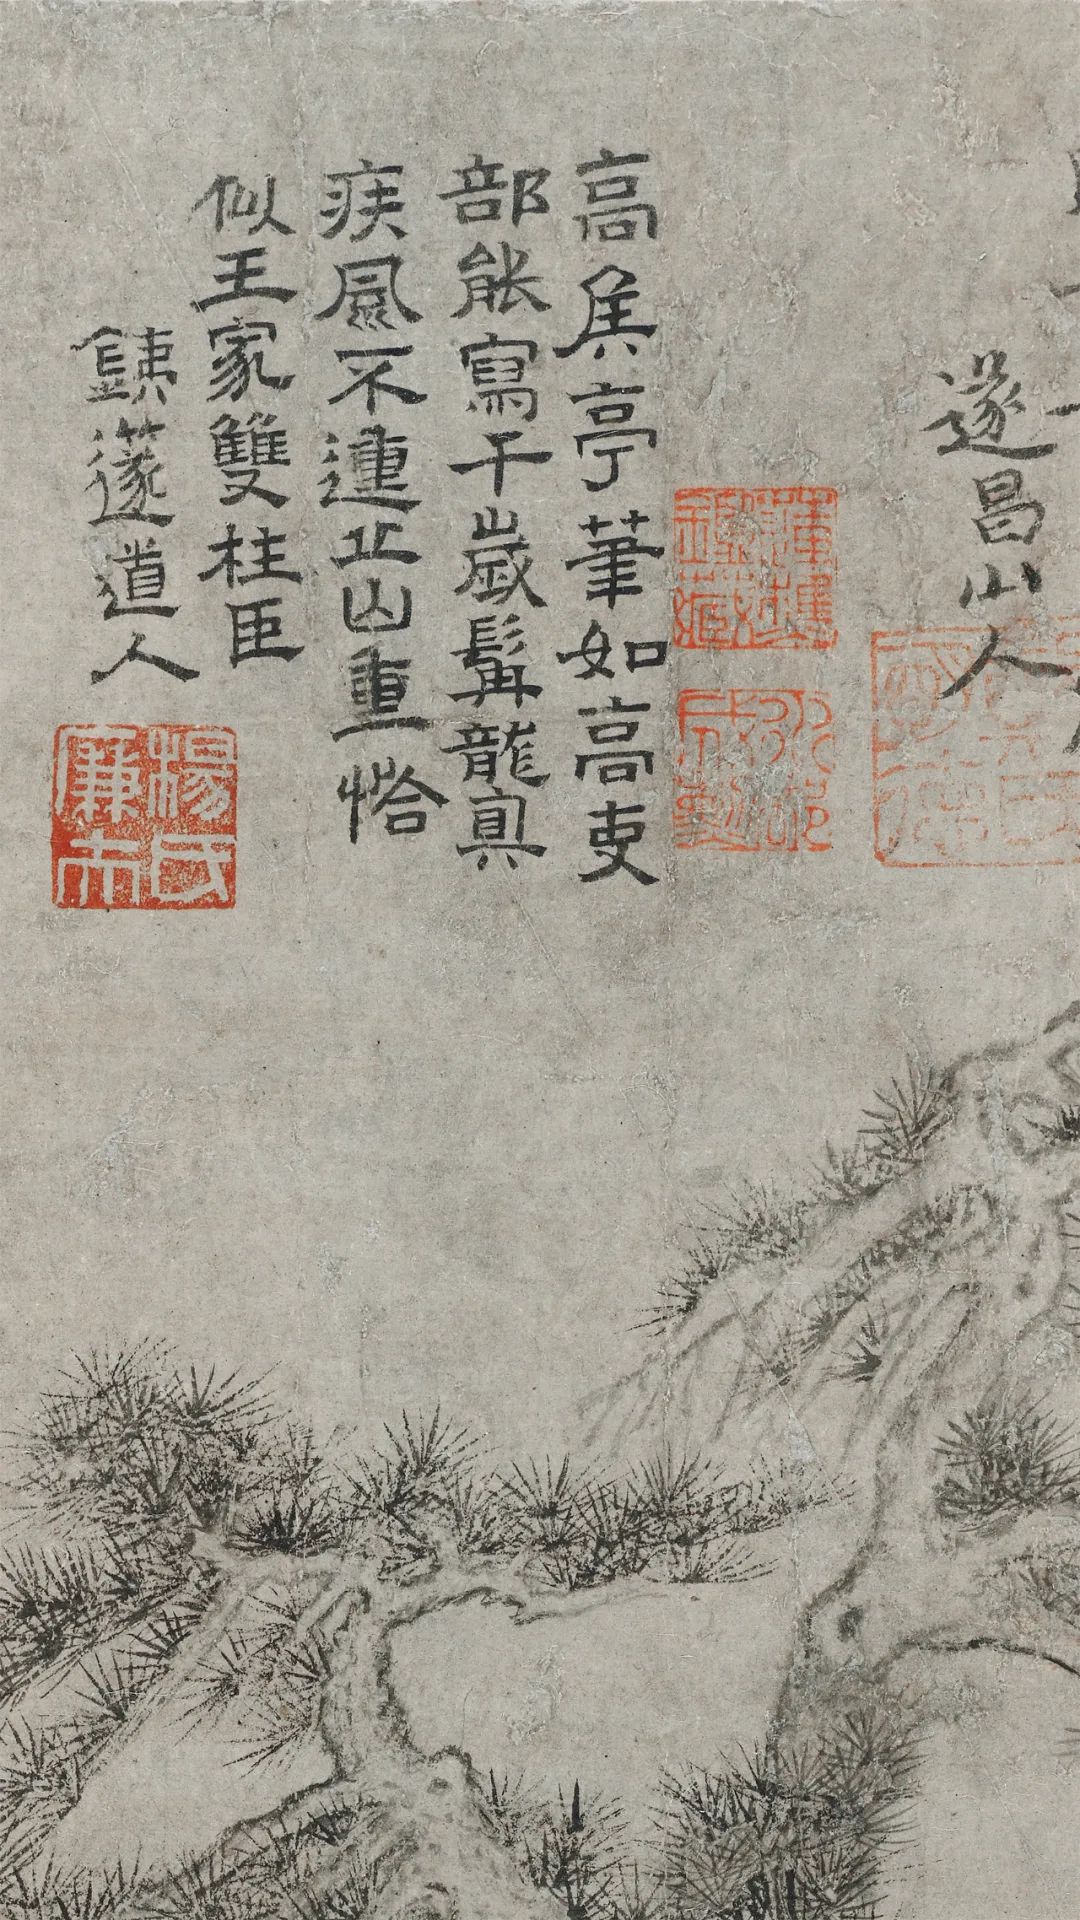 遂昌山人
高矦亭筆如高吏
部能寫千歲髯龍真
疾風不運丘山重恰
似王家雙柱臣
銕篴道人
楊氏廉夫